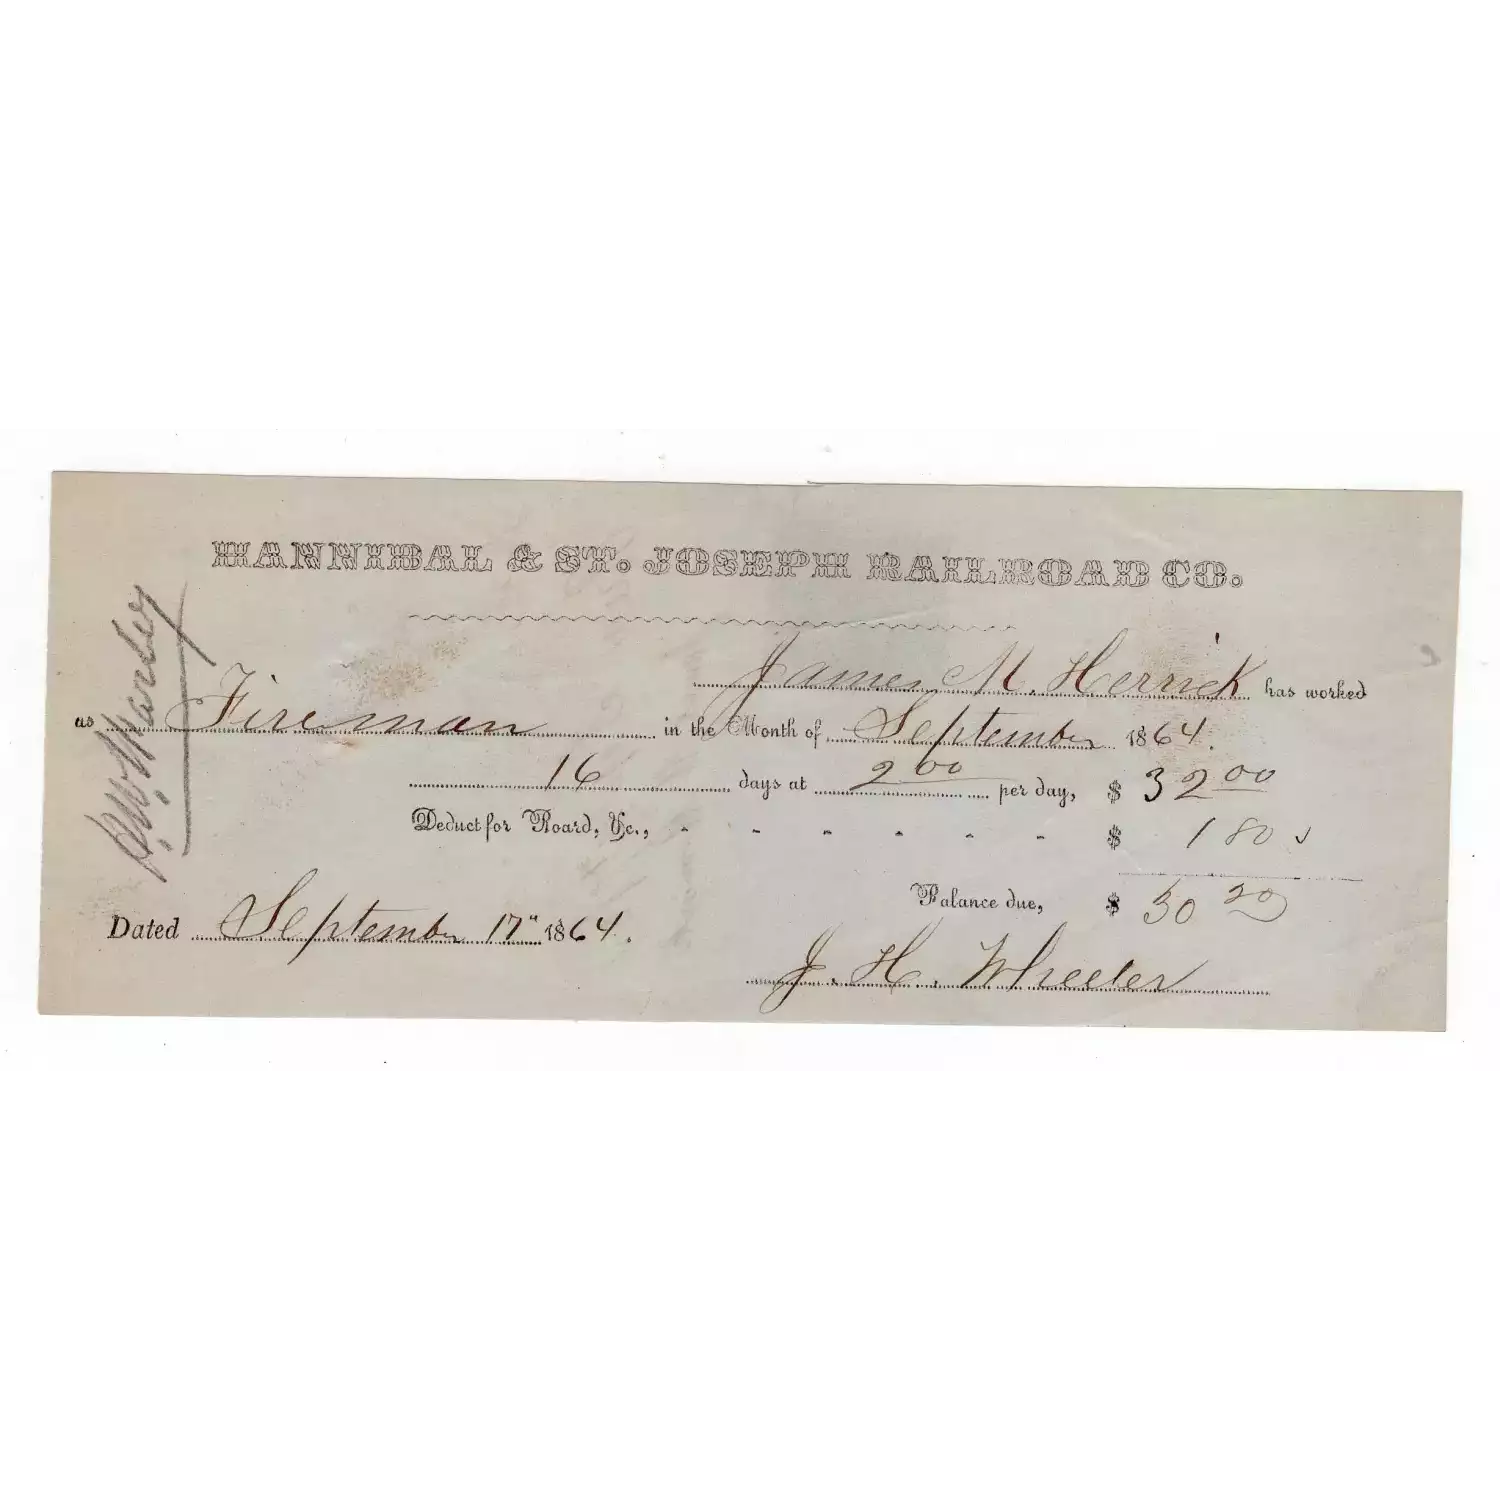 HANNIBAL & ST. JOSEPH RAILROAD CO.
James M. Herrick has worked
as Fireman in the Month of September 1864.
16 days at 2 00 per day, $ 32 00
Deduct for Board, &c., - - - - - - $ 1 80
Balance due, $ 30 20
Dated September 17" 1864.
J. H. Wheeler